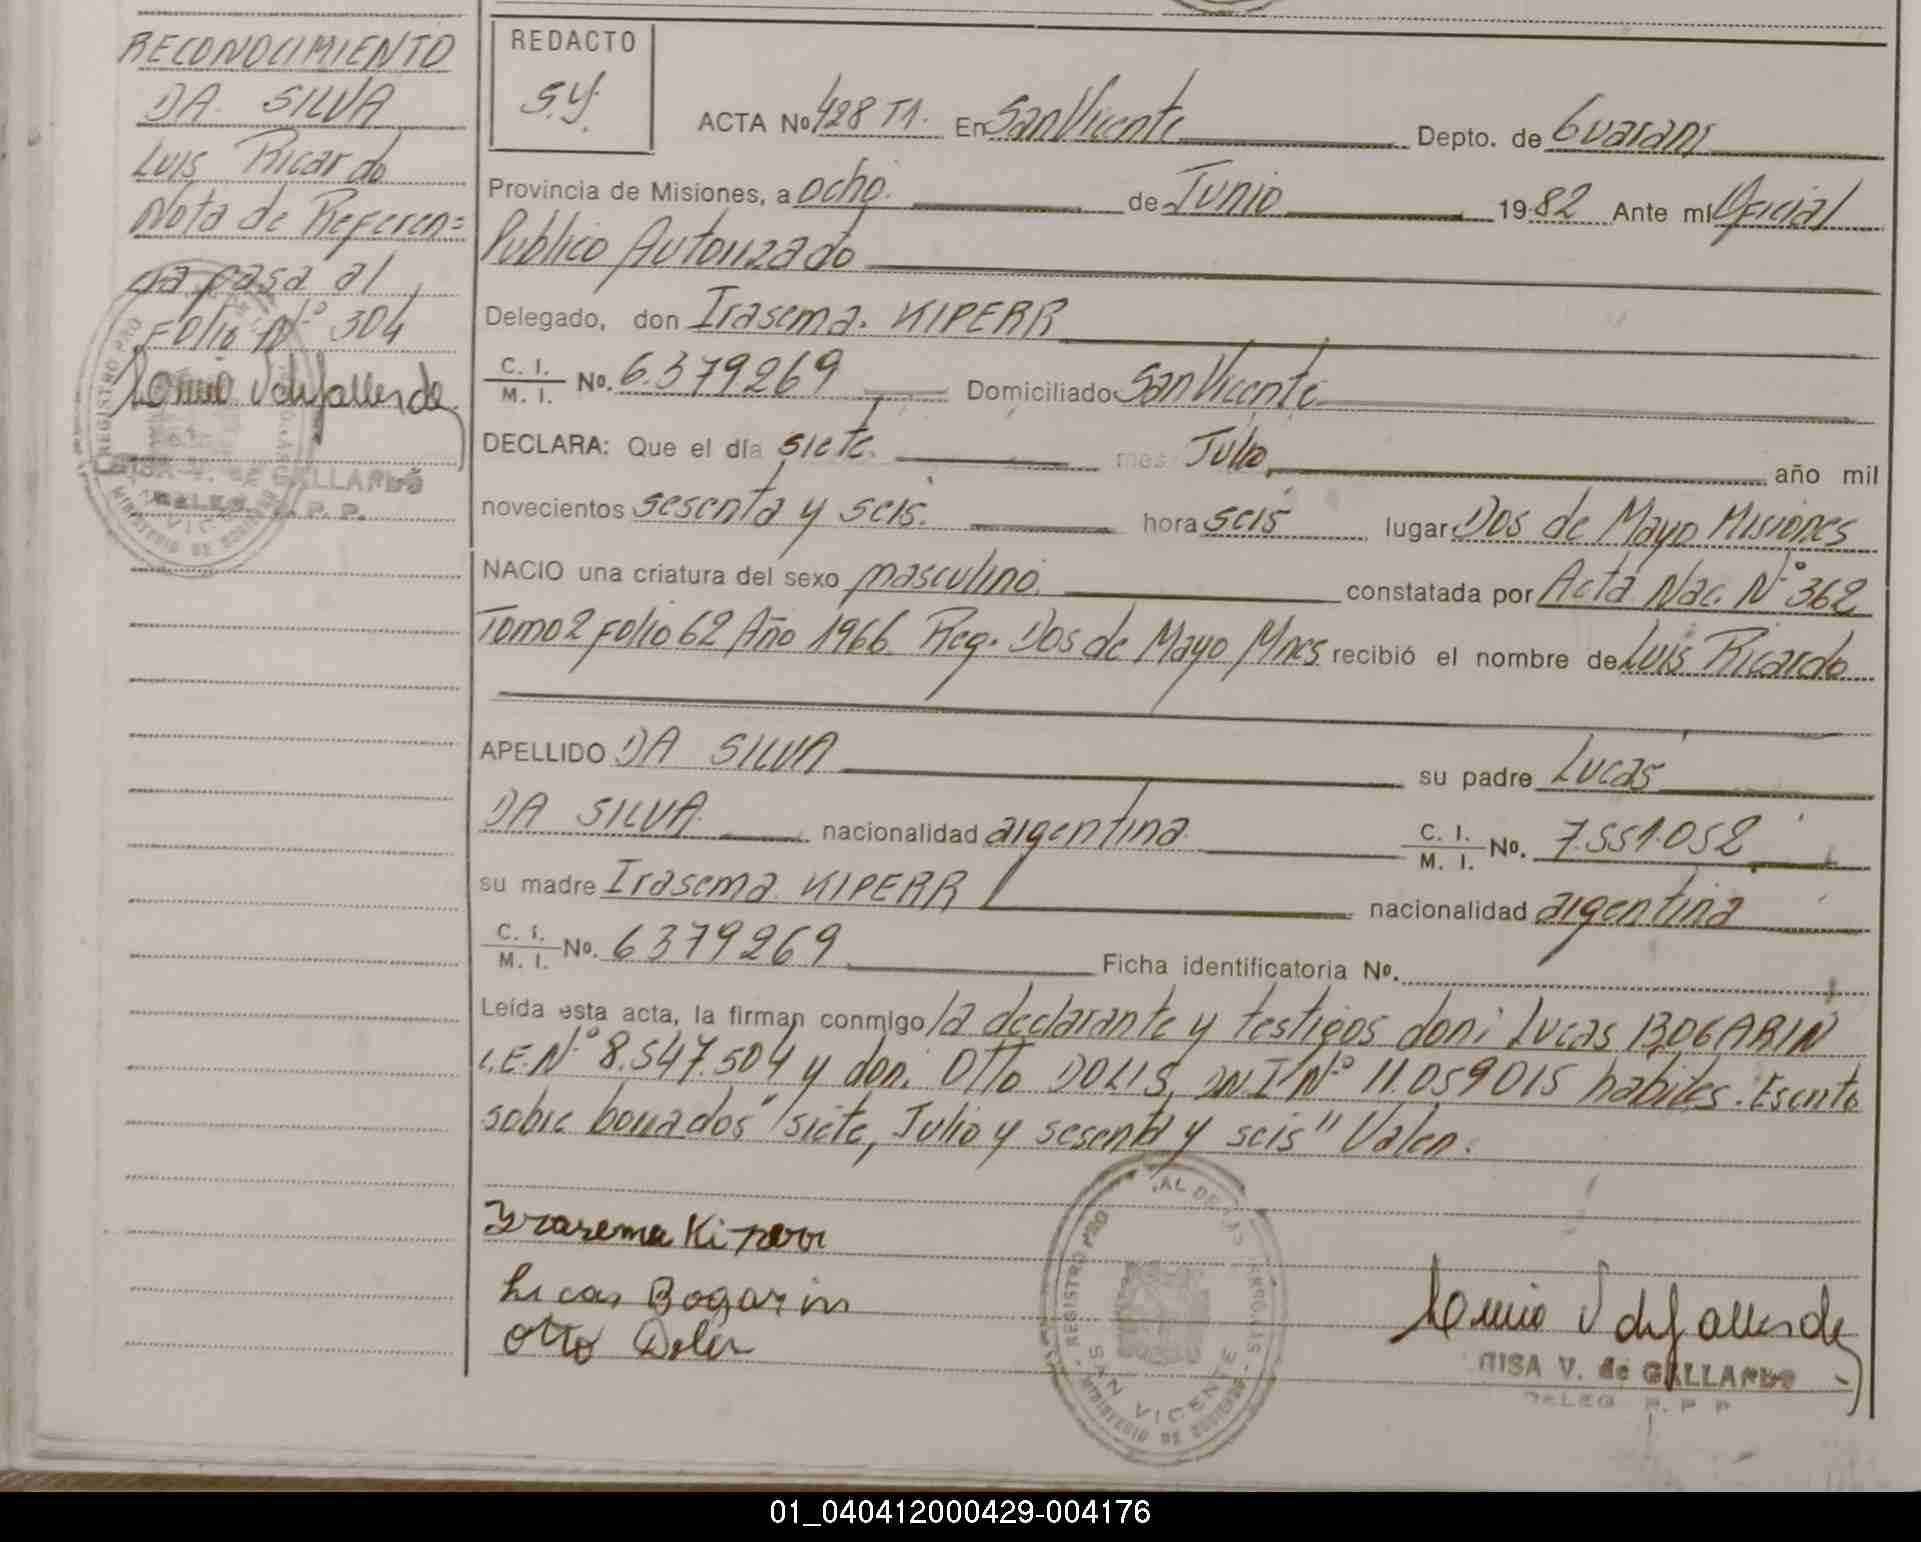 RECONOCIMIENTO
DA SILVA
Luis Ricardo
Nota de Referen=
cia pasa al
Folio Nº 304
REGISTRO PRO
GALLARDO
DELEG. R. P. P.
REDACTO
S.Y.
ACTA Nº 428 T1. En San Vicente Depto. de Guarani
Provincia de Misiones, a ocho. de Junio 1982 Ante mi Oficial
Publico Autorizado
Delegado, don Irasema. KIPERR
C. I. / M. I. Nº. 6.379269 Domiciliado San Vicente
DECLARA: Que el día siete. mes Julio año mil
novecientos sesenta y seis. hora seis lugar Dos de Mayo Misiones
NACIO una criatura del sexo masculino. constatada por Acta Nac. Nº 362
Tomo 2 Folio 62 Año 1966 Reg. Dos de Mayo Mnes recibió el nombre de Luis Ricardo
APELLIDO DA SILVA su padre Lucas
DA SILVA nacionalidad argentina C. I. / M. I. Nº. 7.551.052
su madre Irasema KIPERR nacionalidad argentina
C. I. / M. I. Nº. 6379269 Ficha identificatoria Nº.
Leída esta acta, la firman conmigo la declarante y testigos don: Lucas BOGARIN
L.E.Nº 8.547.504 y don: Otto DOLIS, DN.I Nº 11.059015 habiles. Escrito
sobre borrados "siete, Julio y sesenta y seis" Valen.
Yrasema Kiperr
Lucas Bogarin
Otto
REGISTRO PRO AL DE LAS
SAN VICENTE
MINISTERIO DE GOBIERNO
MISA V. de GALLARDO
DELEG R. P P
01_040412000429-004176